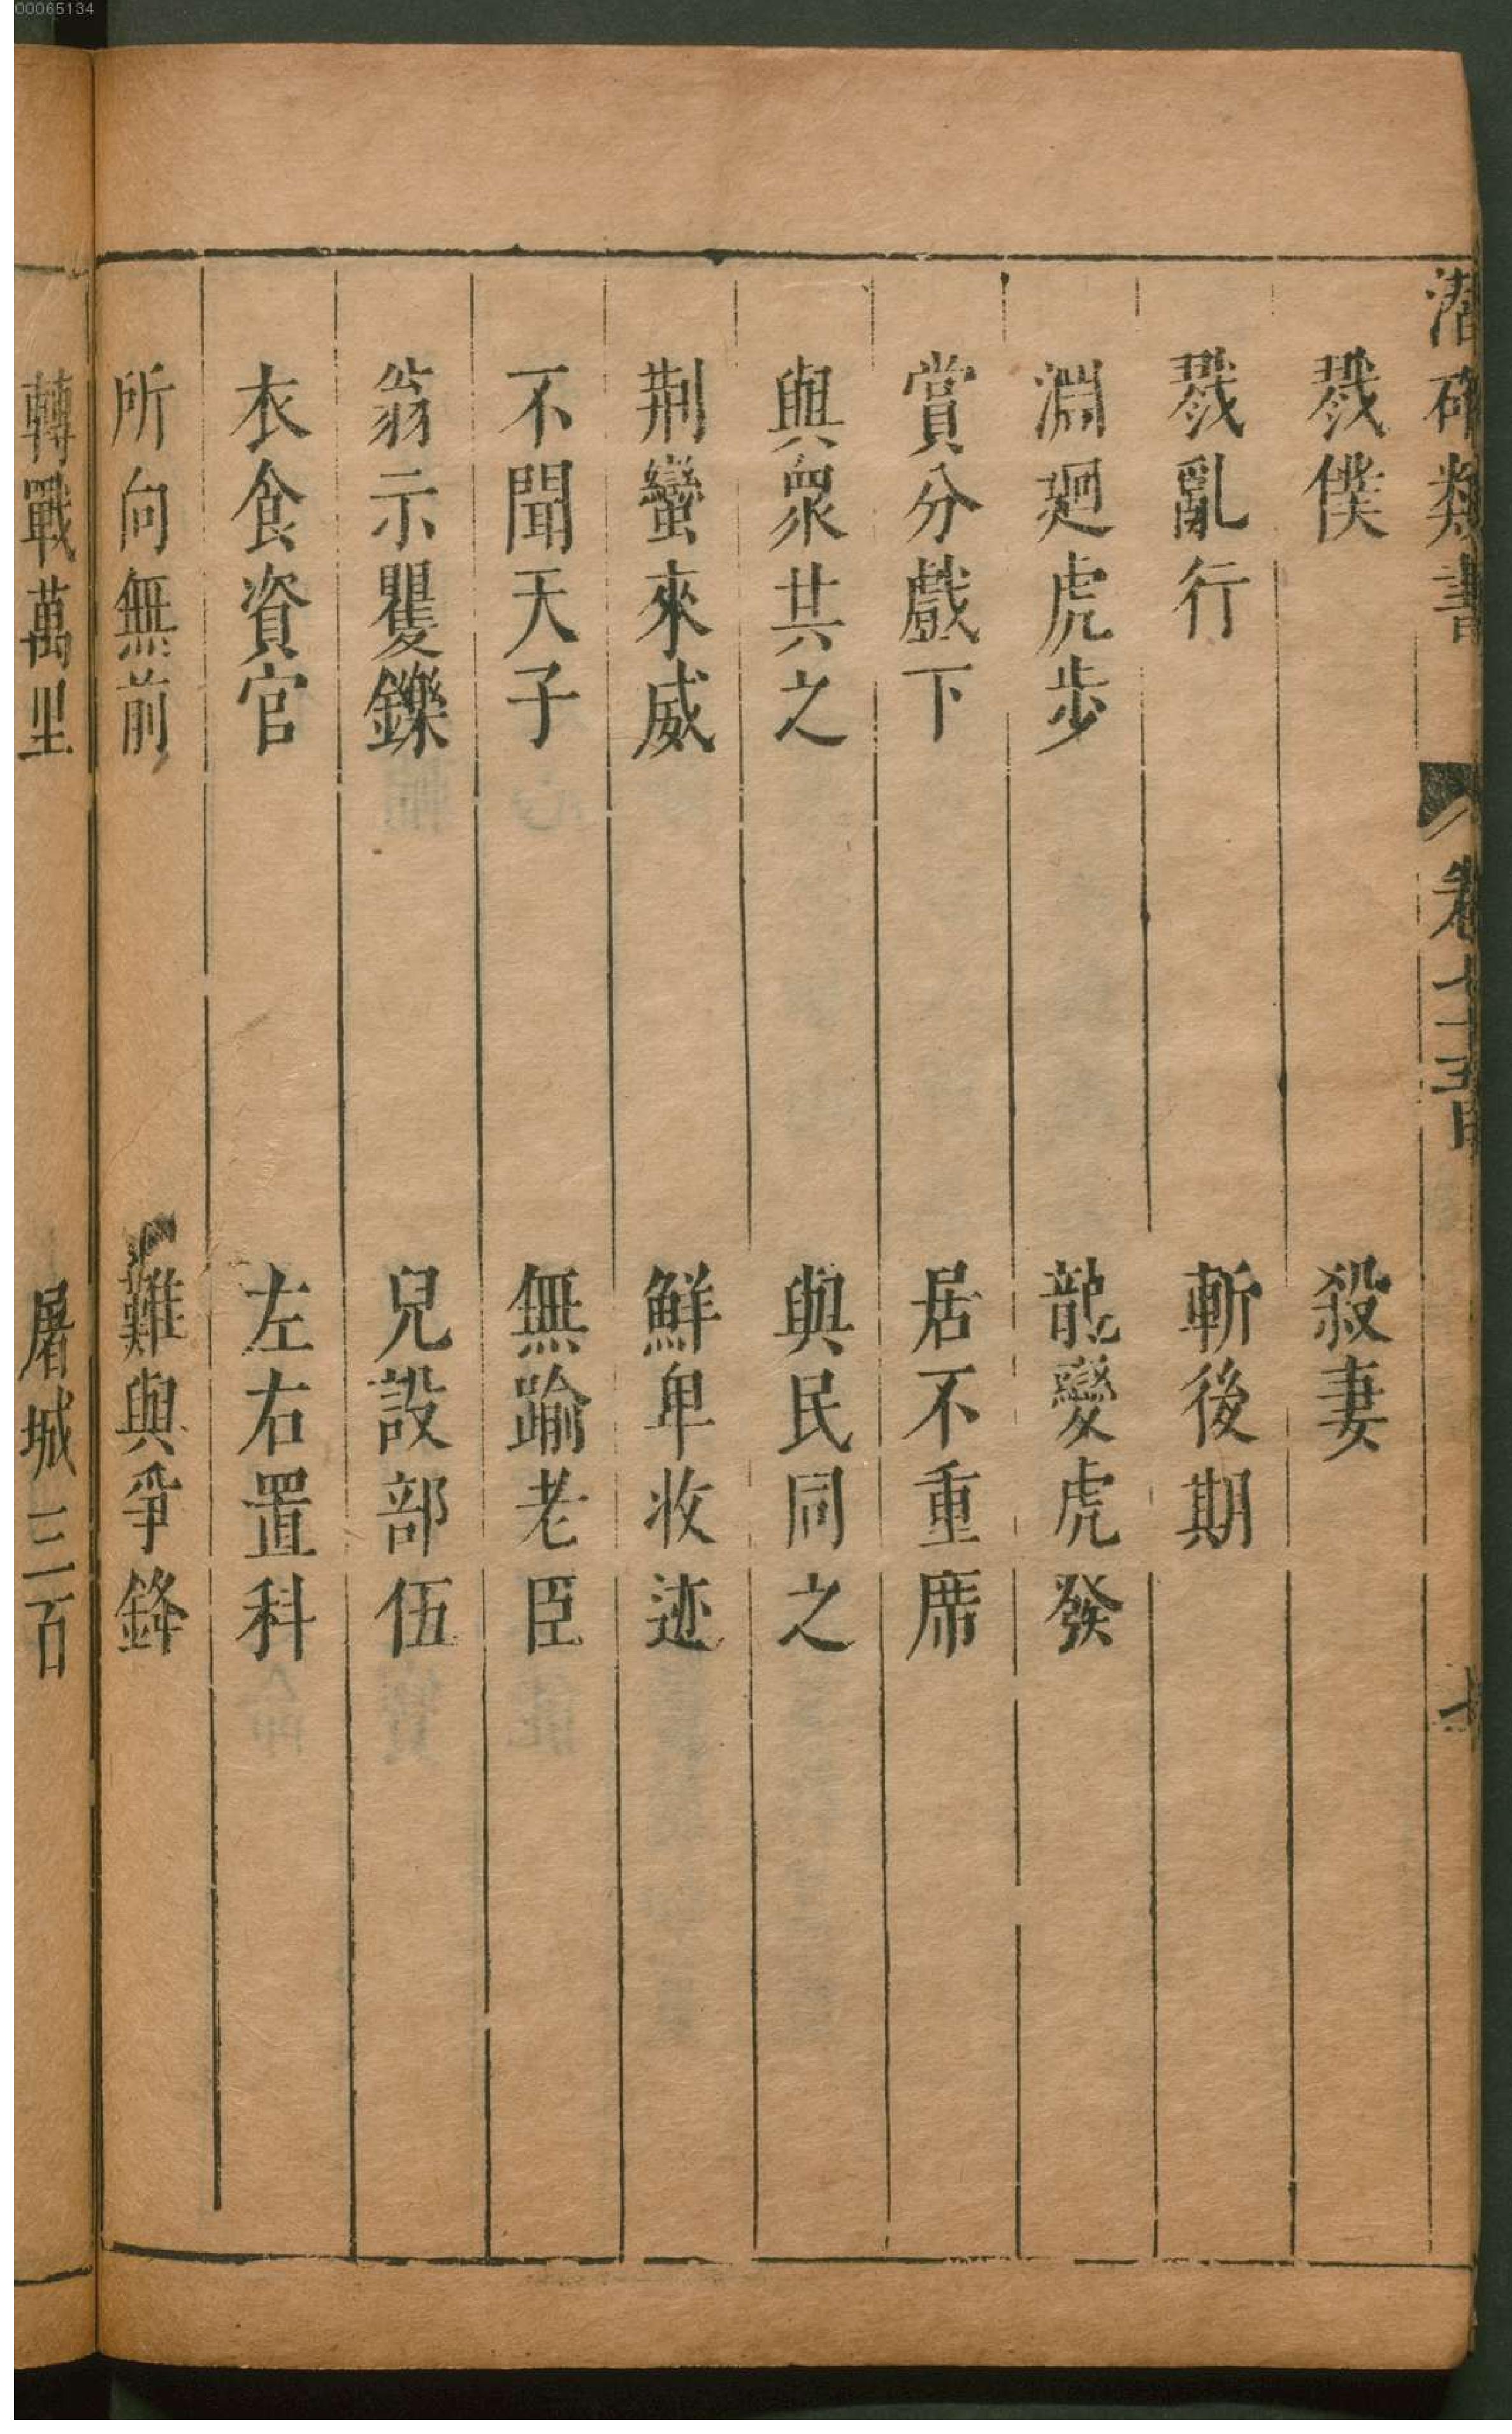 00065134
潛確類書 卷七十五目 七
戮僕 殺妻
戮亂行 斬後期
淵廻虎步 龍變虎發
賞分戲下 居不重席
與衆共之 與民同之
荆蠻來威 鮮卑收迹
不聞天子 無踰老臣
翁示矍鑠 兒設部伍
衣食資官 左右置科
所向無前 難與爭鋒
轉戰萬里 屠城三百